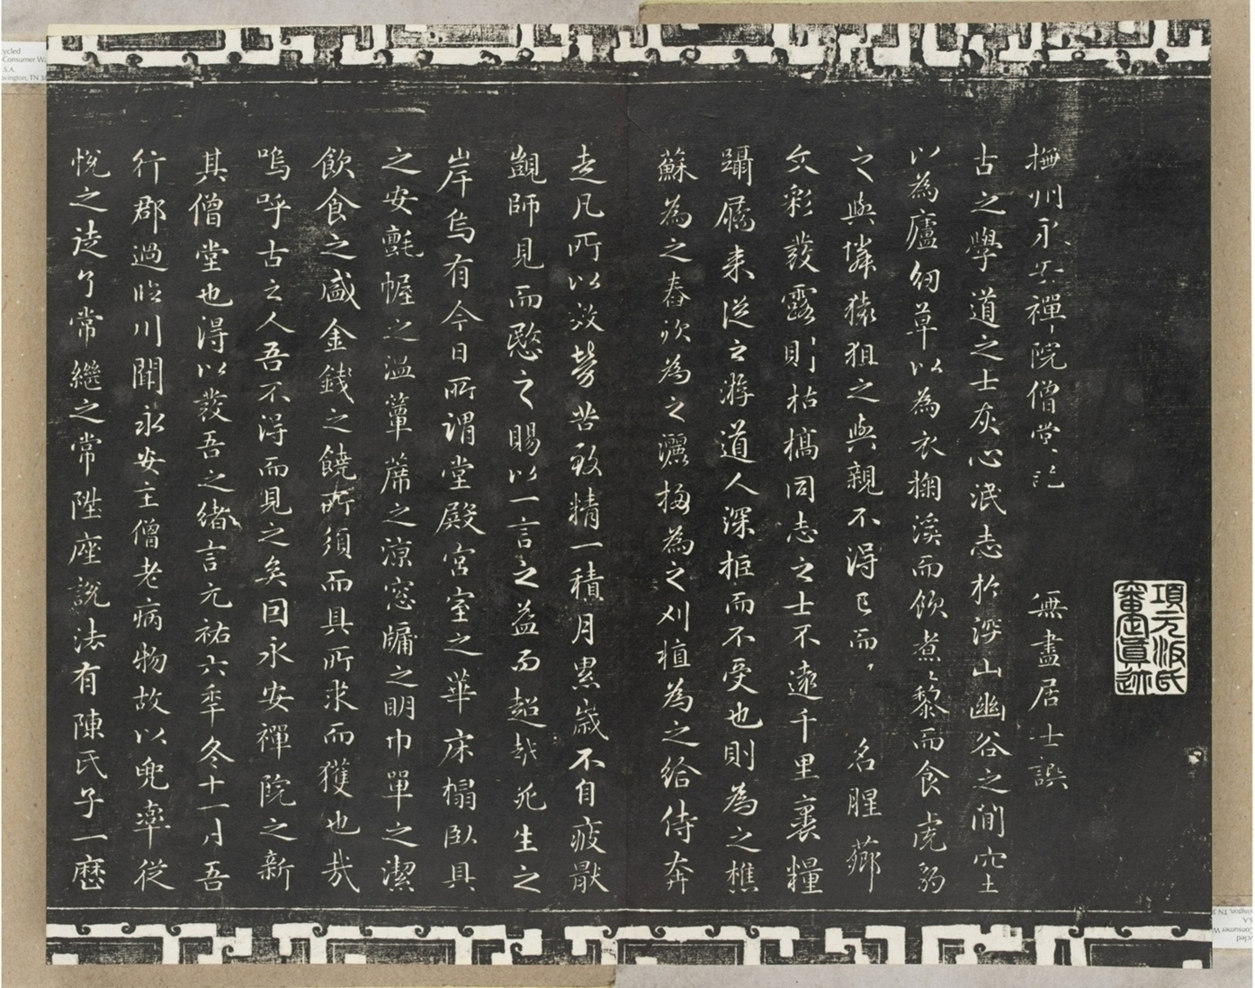 項元汴氏審定真迹
撫州永安禪院僧堂記 無盡居士譔
古之學道之士灰心泯志於深山幽谷之間穴土
以為廬紉草以為衣掬溪而飲煮藜而食虎豹
之與憐猿狙之與親不得已而 名腥薌
文彩發露則枯槁同志之士不遠千里裹糧
躡屩来從之游道人深拒而不受也則為之樵
蘇為之舂炊為之灑掃為之刈植為之給侍奔
走凡所以效勞苦致精一積月累歲不自疲猒
覬師見而愍之賜以一言之益而超越死生之
岸烏有今日所謂堂殿宮室之華床榻臥具
之安氈幄之溫簟蓆之涼窓牖之明巾單之潔
飲食之盛金錢之饒所須而具所求而獲也哉
嗚呼古之人吾不得而見之矣因永安禪院之新
其僧堂也得以發吾之緒言元祐六年冬十一月吾
行郡過臨川聞永安主僧老病物故以兜率從
悅之徒了常繼之常陞座說法有陳氏子一歷